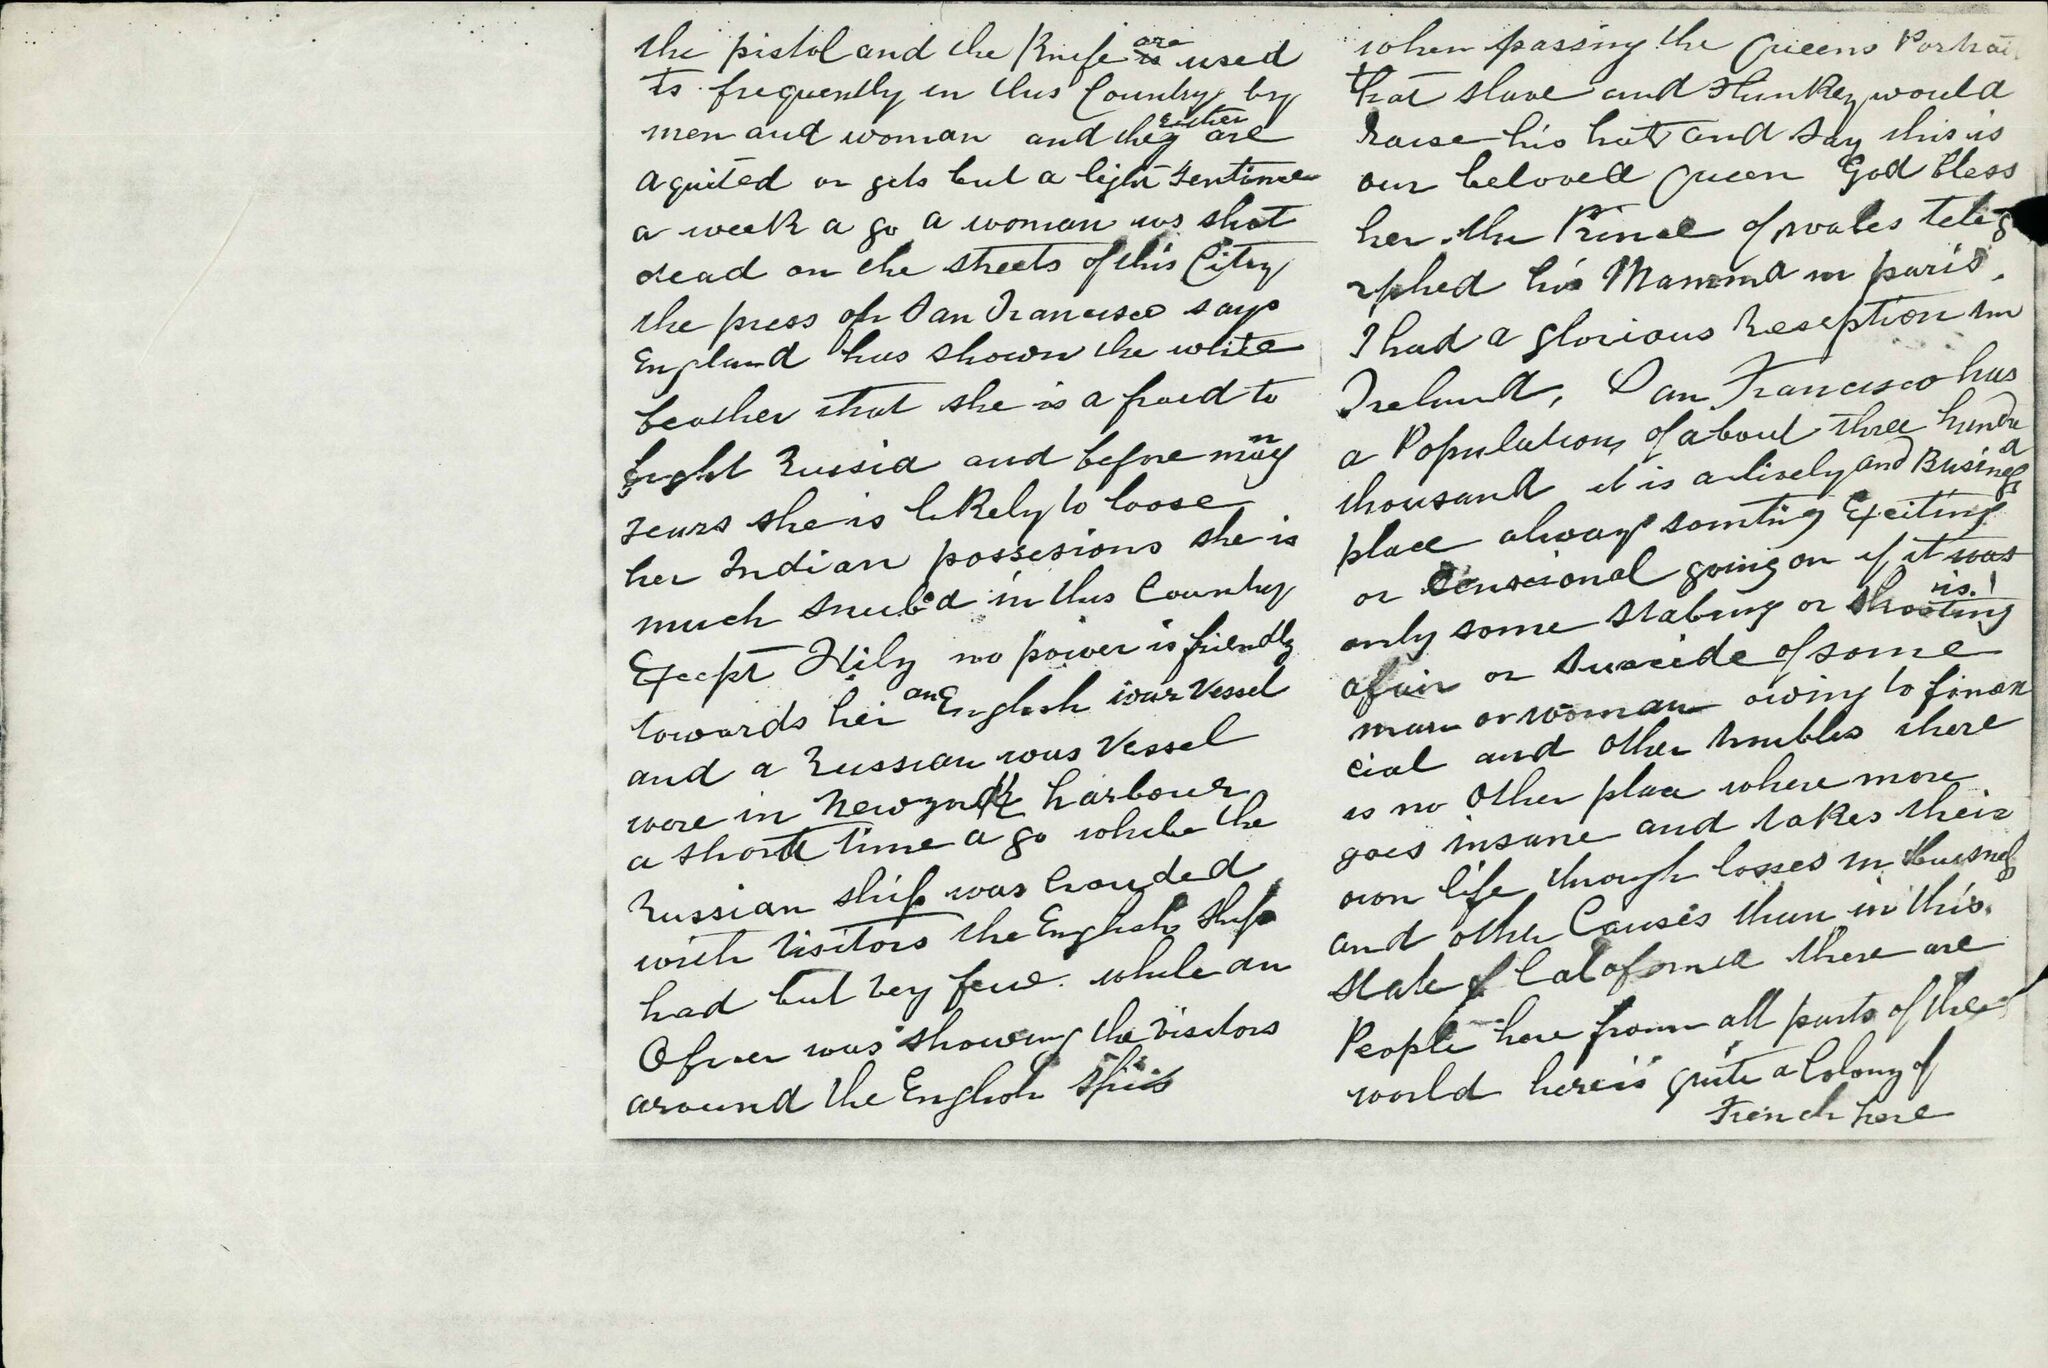 the pistol and the Knife are is used
to frequently in this Country by
men and woman and they either are
aquited or gets but a light Sentince
a week a go a woman ws shot
dead on the streets of this City
the press of San Francisco says
England has shown the white
feather that she is a fraid to
fight Russia and before many
years she is likely to loose
her Indian possesions she is
much snubed in this Country
Except Itily no power is friendly
towards her an English war Vessel
and a Russian war Vessel
were in Newyork harbour
a short time a go while the
Russian ship was Crouded
with Visitors the English Ship
had but very few. while an
Oficer was showing the Visitors
around the English Ship
when passing the Queens Portrait
that slave and Flunkey would
raise his hat and say this is
our beloved Queen God Bless
her. the Prince of wales teleg
rphed his Mamma in paris.
I had a glorious Reseption in
Ireland, San Francisco has
a Population of about three hundred
thousand it is a lively and Business
place always somting Exciting
or Sensational going on if it was is!
only some stabing or shooting
afair or Suicide of some
man or woman owing to finan
cial and other troubles there
is no other place where more
goes insane and takes their
own life through losses in Buisness
and other Causes than in this
state of Calofornia there are
People here from all parts of the
world here is quite a Colony of
French here